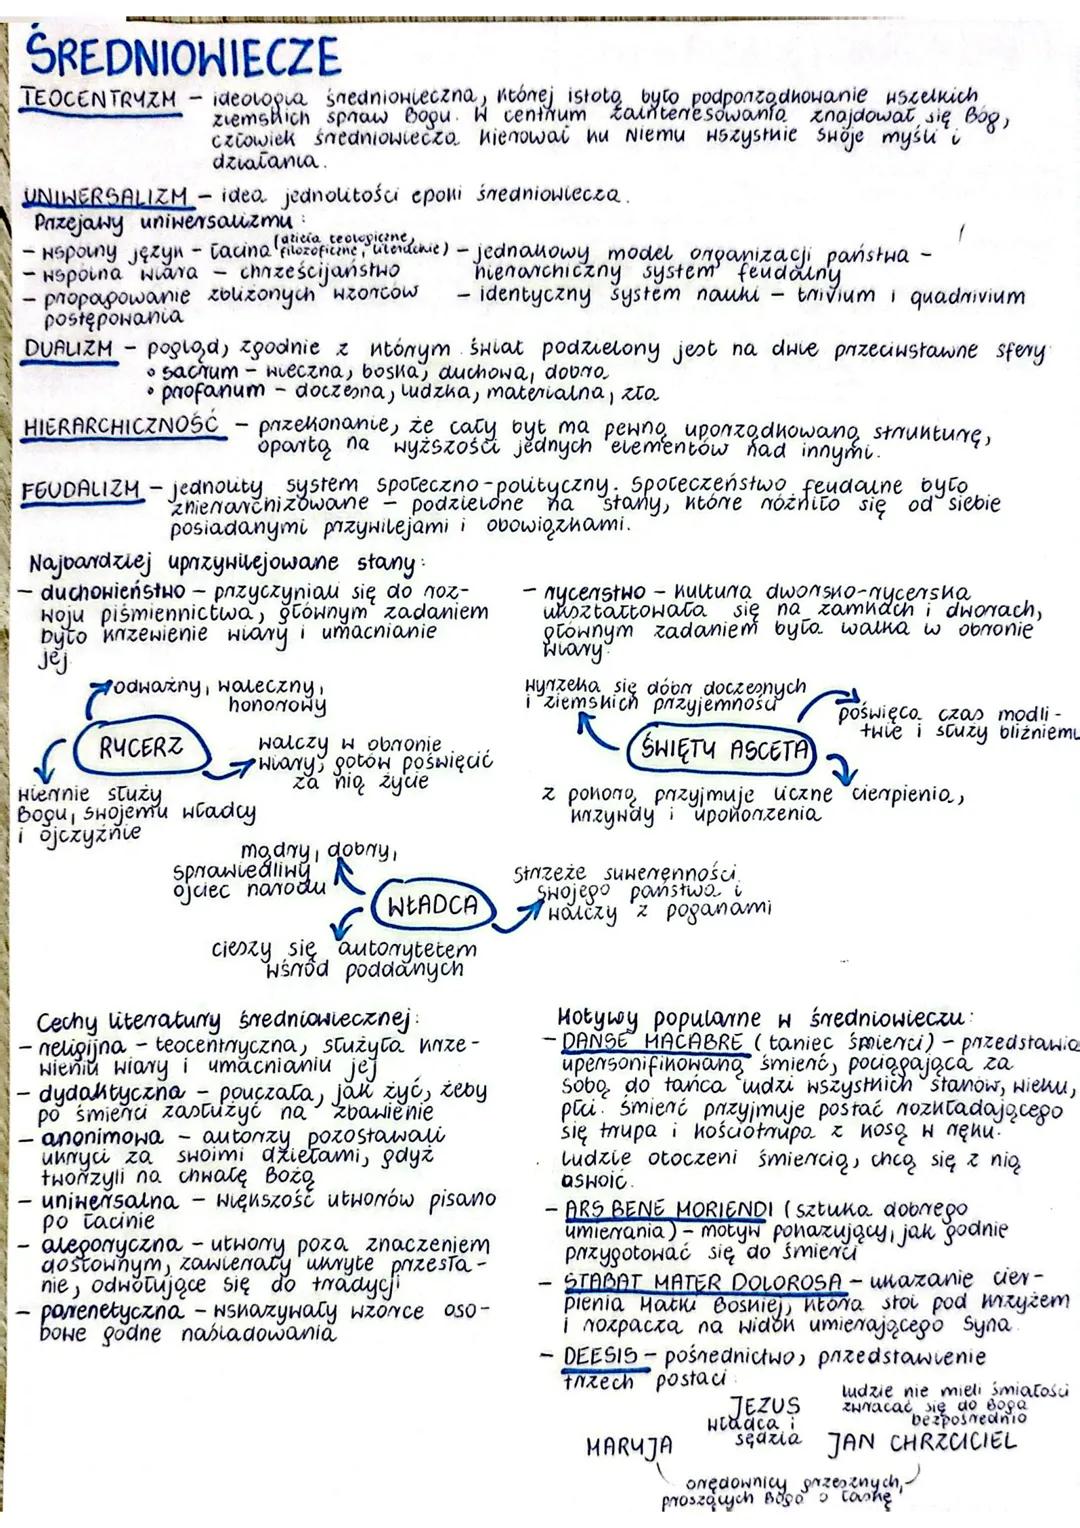 ŚREDNIOWIECZE
TEOCENTRYZM – ideologia średniowieczna, której istotą było podporządkowanie wszelkich
ziemskich spraw Bogu. W centrum zainteresowania znajdował się Bóg,
człowiek średniowiecza kierował ku Niemu wszystkie swoje myśli i
działania.
UNIWERSALIZM – idea jednolitości epoki średniowiecza.
Przejawy uniwersalizmu:
– wspólny język – łacina (dzieła teologiczne, filozoficzne, literackie)
– wspólna wiara – chrześcijaństwo
– propagowanie zbliżonych wzorców
postępowania
– jednakowy model organizacji państwa –
hierarchiczny system feudalny
– identyczny system nauki – trivium i quadrivium
DUALIZM – pogląd, zgodnie z którym świat podzielony jest na dwie przeciwstawne sfery
• sacrum – wieczna, boska, duchowa, dobra
• profanum – doczesna, ludzka, materialna, zła
HIERARCHICZNOŚĆ – przekonanie, że cały byt ma pewną uporządkowaną strukturę,
opartą na wyższości jednych elementów nad innymi.
FEUDALIZM – jednolity system społeczno-polityczny. Społeczeństwo feudalne było
zhierarchizowane – podzielone na stany, które różniło się od siebie
posiadanymi przywilejami i obowiązkami.
Najbardziej uprzywilejowane stany:
– duchowieństwo – przyczyniali się do roz-
woju piśmiennictwa, głównym zadaniem
było krzewienie wiary i umacnianie
jej
– rycerstwo – kultura dworsko-rycerska
ukształtowała się na zamkach i dworach,
głównym zadaniem była walka w obronie
wiary
odważny, waleczny,
honorowy
RYCERZ
walczy w obronie
wiary, gotów poświęcić
za nią życie
wiernie służy
Bogu, swojemu władcy
i ojczyźnie
wyrzeka się dóbr doczesnych
i ziemskich przyjemności
poświęca czas modli-
twie i służy bliźniemu
ŚWIĘTY ASCETA
z pokorą przyjmuje liczne cierpienia,
krzywdy i upokorzenia
mądry, dobry,
sprawiedliwy
ojciec narodu
WŁADCA
strzeże suwerenności
swojego państwa i
walczy z poganami
cieszy się autorytetem
wśród poddanych
Cechy literatury średniowiecznej:
– religijna – teocentryczna, służyła krze-
wieniu wiary i umacnianiu jej
– dydaktyczna – pouczała, jak żyć, żeby
po śmierci zasłużyć na zbawienie
– anonimowa – autorzy pozostawali
ukryci za swoimi dziełami, gdyż
tworzyli na chwałę Bożą
– uniwersalna – większość utworów pisano
po łacinie
– alegoryczna – utwory poza znaczeniem
dosłownym, zawierały ukryte przesła-
nie, odwołujące się do tradycji
– parenetyczna – wskazywały wzorce oso-
bowe godne naśladowania
Motywy popularne w średniowieczu:
– DANSE MACABRE (taniec śmierci) – przedstawia
upersonifikowaną śmierć, pociągającą za
sobą do tańca ludzi wszystkich stanów, wieku,
płci. Śmierć przyjmuje postać rozkładającego
się trupa i kościotrupa z kosą w ręku.
Ludzie otoczeni śmiercią, chcą się z nią
oswoić.
– ARS BENE MORIENDI (sztuka dobrego
umierania) – motyw pokazujący, jak godnie
przygotować się do śmierci
– STABAT MATER DOLOROSA – ukazanie cier-
pienia Matki Boskiej, która stoi pod krzyżem
i rozpacza na widok umierającego Syna.
– DEESIS – pośrednictwo, przedstawienie
trzech postaci
JEZUS
władca i
sędzia
ludzie nie mieli śmiałości
zwracać się do Boga
bezpośrednio
MARYJA
JAN CHRZCICIEL
orędownicy grzesznych,
proszących Boga o łaskę